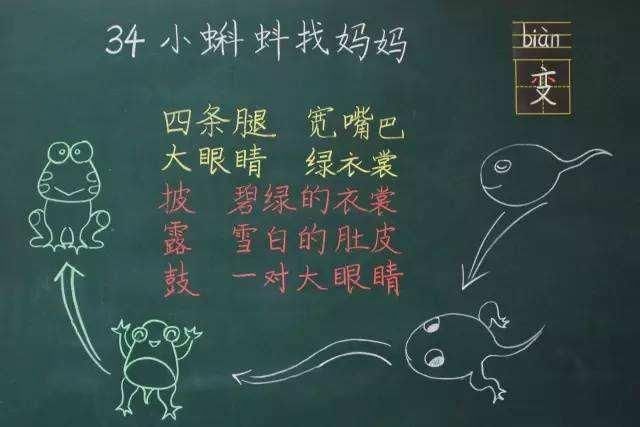 34 小蝌蚪找妈妈
biàn
变
四条腿 宽嘴巴
大眼睛 绿衣裳
披 碧绿的衣裳
露 雪白的肚皮
鼓 一对大眼睛